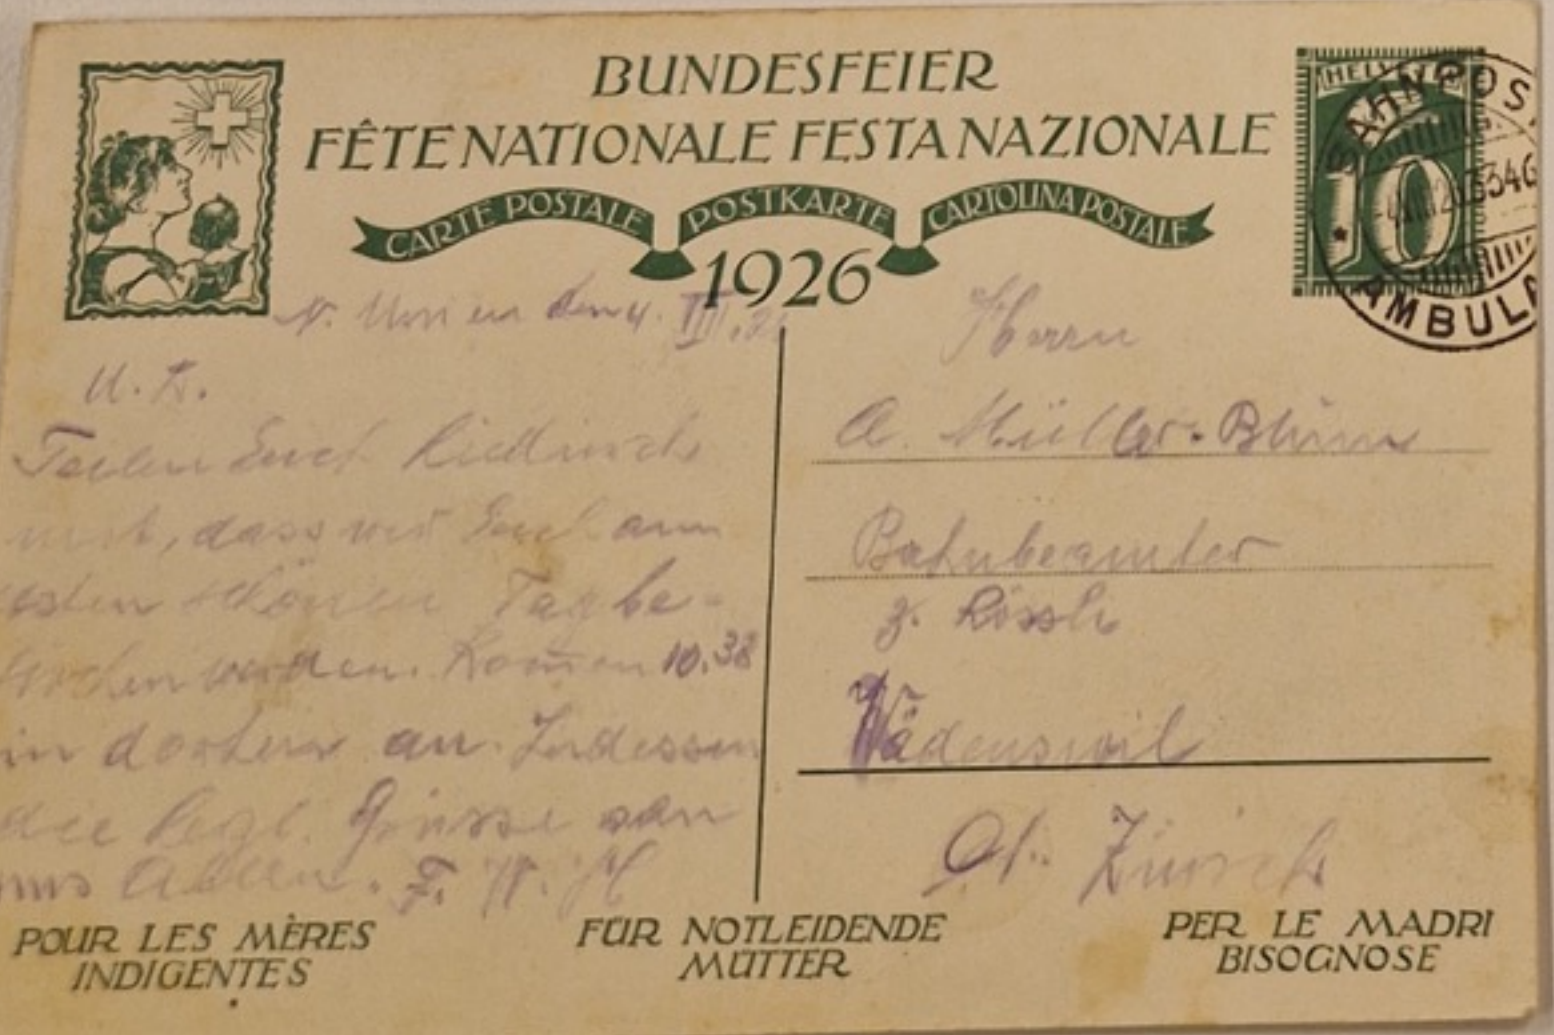 BUNDESFEIER
FÊTE NATIONALE FESTA NAZIONALE
CARTE POSTALE POSTKARTE CARTOLINA POSTALE
1926
HELV
10
BAHNPOS
AMBULA
den 4. VIII. 26
U. L.
Teilen Euch
mit, dass wir Euch am
schönen Tag be-
werden. Komen 10.38
in dorten an. Indessen
die hrzl. Grüsse von
uns Allen. F. W. H
Herrn
A. Müller-Blum
Bahnbeamter
z. Rössli
Wädenswil
Ct. Zürich
POUR LES MÈRES
INDIGENTES
FÜR NOTLEIDENDE
MÜTTER
PER LE MADRI
BISOGNOSE